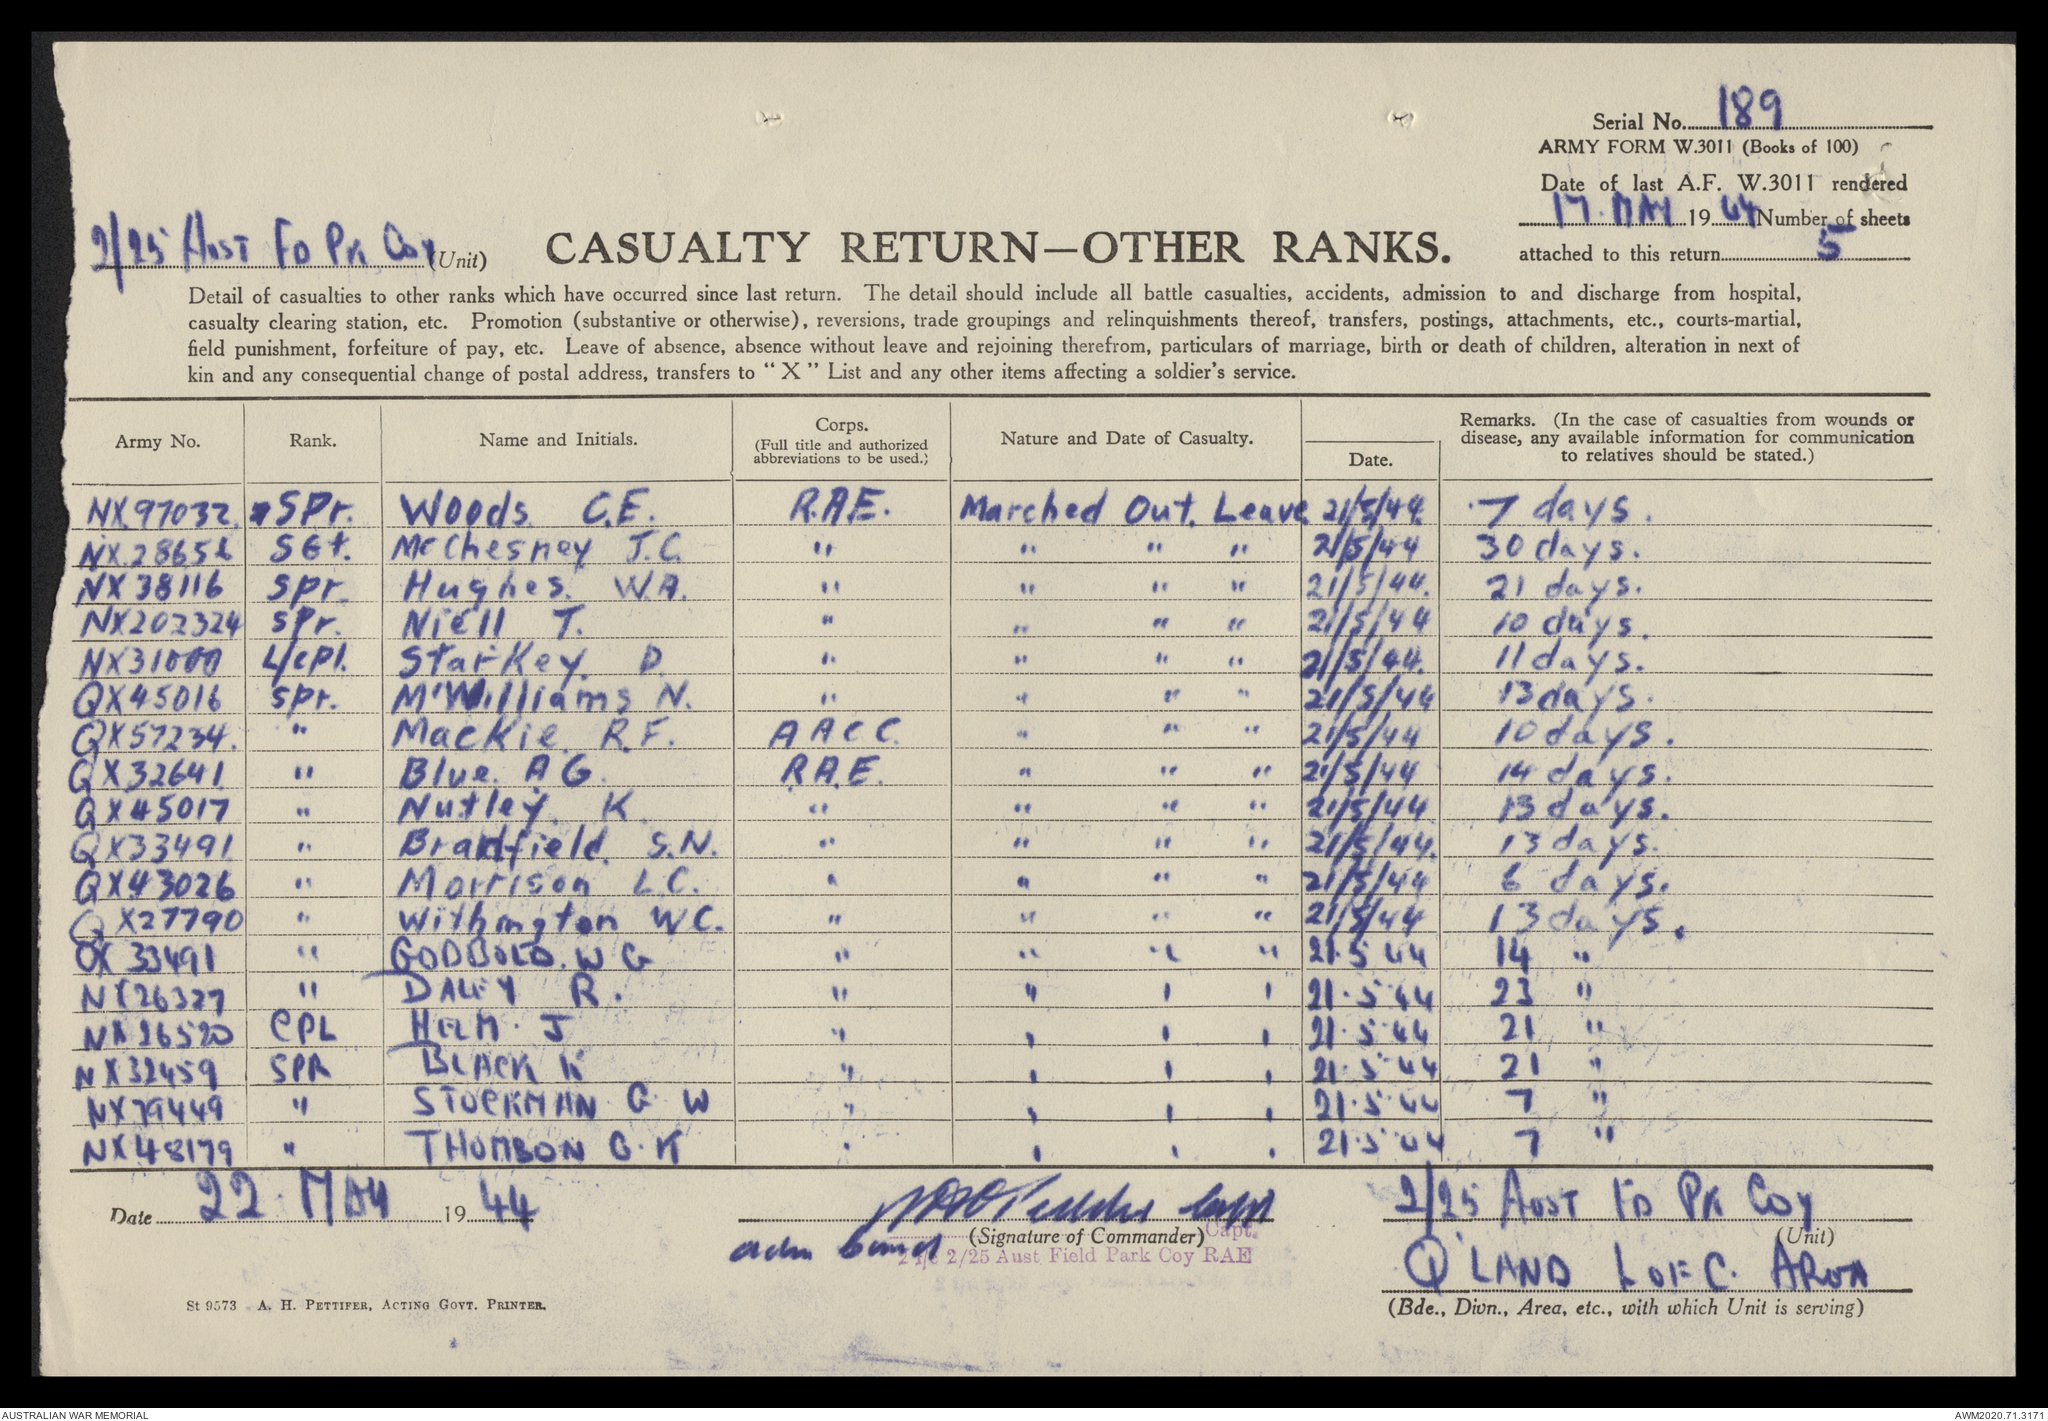 Serial No. 189
ARMY FORM W.3011 (Books of 100)
Date of last A.F. W.3011 rendered
17. MAY 19 44 Number of sheets
attached to this return 5
2/25 AUST FD PK COY (Unit) CASUALTY RETURN—OTHER RANKS.
Detail of casualties to other ranks which have occurred since last return. The detail should include all battle casualties, accidents, admission to and discharge from hospital,
casualty clearing station, etc. Promotion (substantive or otherwise), reversions, trade groupings and relinquishments thereof, transfers, postings, attachments, etc., courts-martial,
field punishment, forfeiture of pay, etc. Leave of absence, absence without leave and rejoining therefrom, particulars of marriage, birth or death of children, alteration in next of
kin and any consequential change of postal address, transfers to "X" List and any other items affecting a soldier's service.
Army No. Rank. Name and Initials. Corps. (Full title and authorized abbreviations to be used.) Nature and Date of Casualty. Date. Remarks. (In the case of casualties from wounds or disease, any available information for communication to relatives should be stated.)
NX97032 Spr. Woods C.E. R.A.E. Marched Out. Leave 21/5/44 7 days.
NX28656 Sgt. McChesney J.C. " " " " 21/5/44 30 days.
NX38116 Spr. Hughes. W.A. " " " " 21/5/44. 21 days.
NX202324 Spr. Niell T. " " " " 21/5/44 10 days.
NX31000 L/Cpl. Starkey. D. " " " " 21/5/44. 11 days.
QX45016 Spr. McWilliams N. " " " " 21/5/44 13 days.
QX57234. " Mackie R.F. A A C C. " " " 21/5/44 10 days.
QX32641 " Blue. A G. R.A.E. " " " 21/5/44 14 days.
QX45017 " Nutley. K. " " " " 21/5/44 13 days.
QX33491 " Bradfield. S.N. " " " " 21/5/44. 13 days.
QX43026 " Morrison L.C. " " " " 21/5/44 6 days.
QX27790 " Withington W.C. " " " " 21/5/44 13 days.
QX 33491 " GODBOLD. W G " " " " 21.5 44 14 "
NX26327 " DALEY R. " " " " 21.5 44 23 "
NX26520 CPL HELM. J " " " " 21.5.44 21 "
NX32459 SPR BLACK K " " " " 21.5.44 21 "
NX79449 " STOCKMAN G W " " " " 21.5.44 7 "
NX48179 " THOMSON G. K " " " " 21.5 44 7 "
Date 22. MAY 19 44 Capt (Signature of Commander) Capt. 2/25 AUST FD PK COY (Unit)
2/25 Aust Field Park Coy RAE
Q'LAND L OF C. AREA
(Bde., Divn., Area, etc., with which Unit is serving)
St 9573 A. H. PETTIFER, ACTING GOVT. PRINTER.
AUSTRALIAN WAR MEMORIAL AWM2020.71.3171